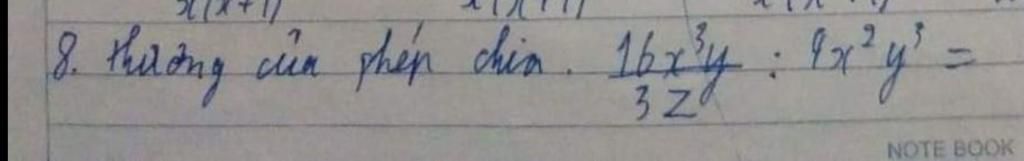 8. thương của phép chia. \frac{16x^3y}{3z} : 9x^2y^3 =
NOTE BOOK